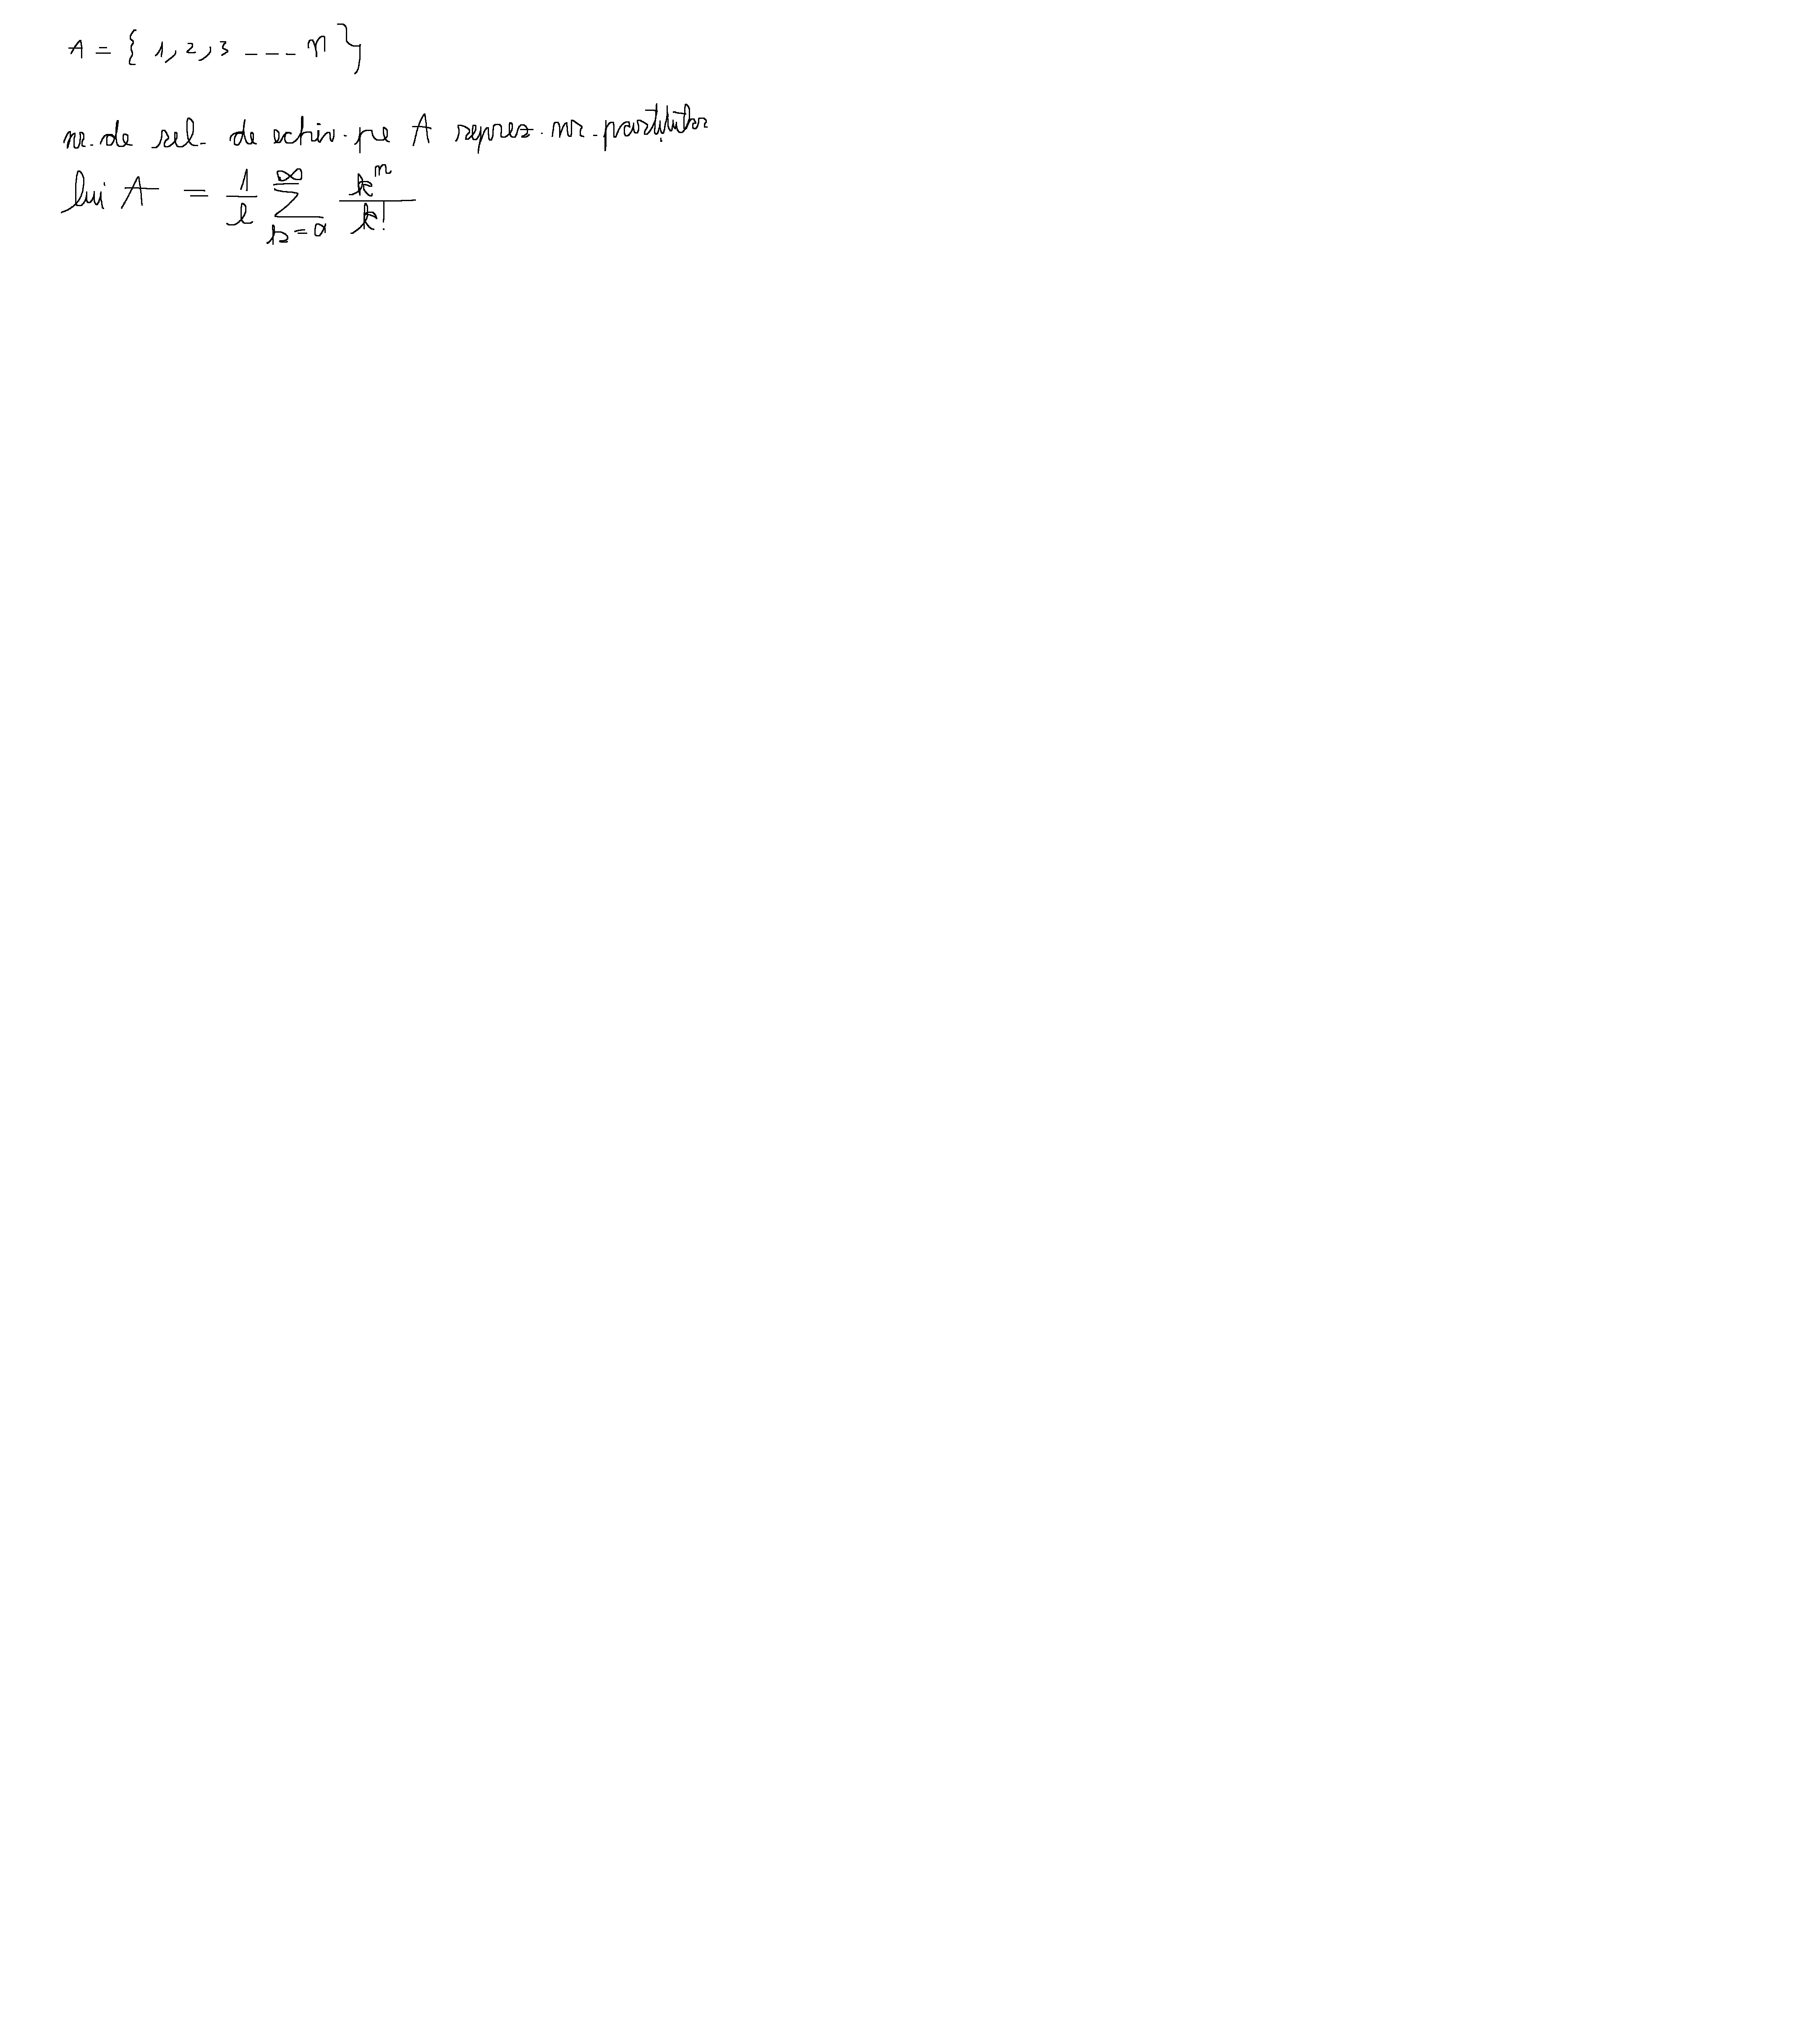 A = { 1, 2, 3 --- n }
nr. de rel. de echiv. pe A reprez. nr. partițiilor
lui A = 1/e ∑_{k=0}^{∞} k^n/k!